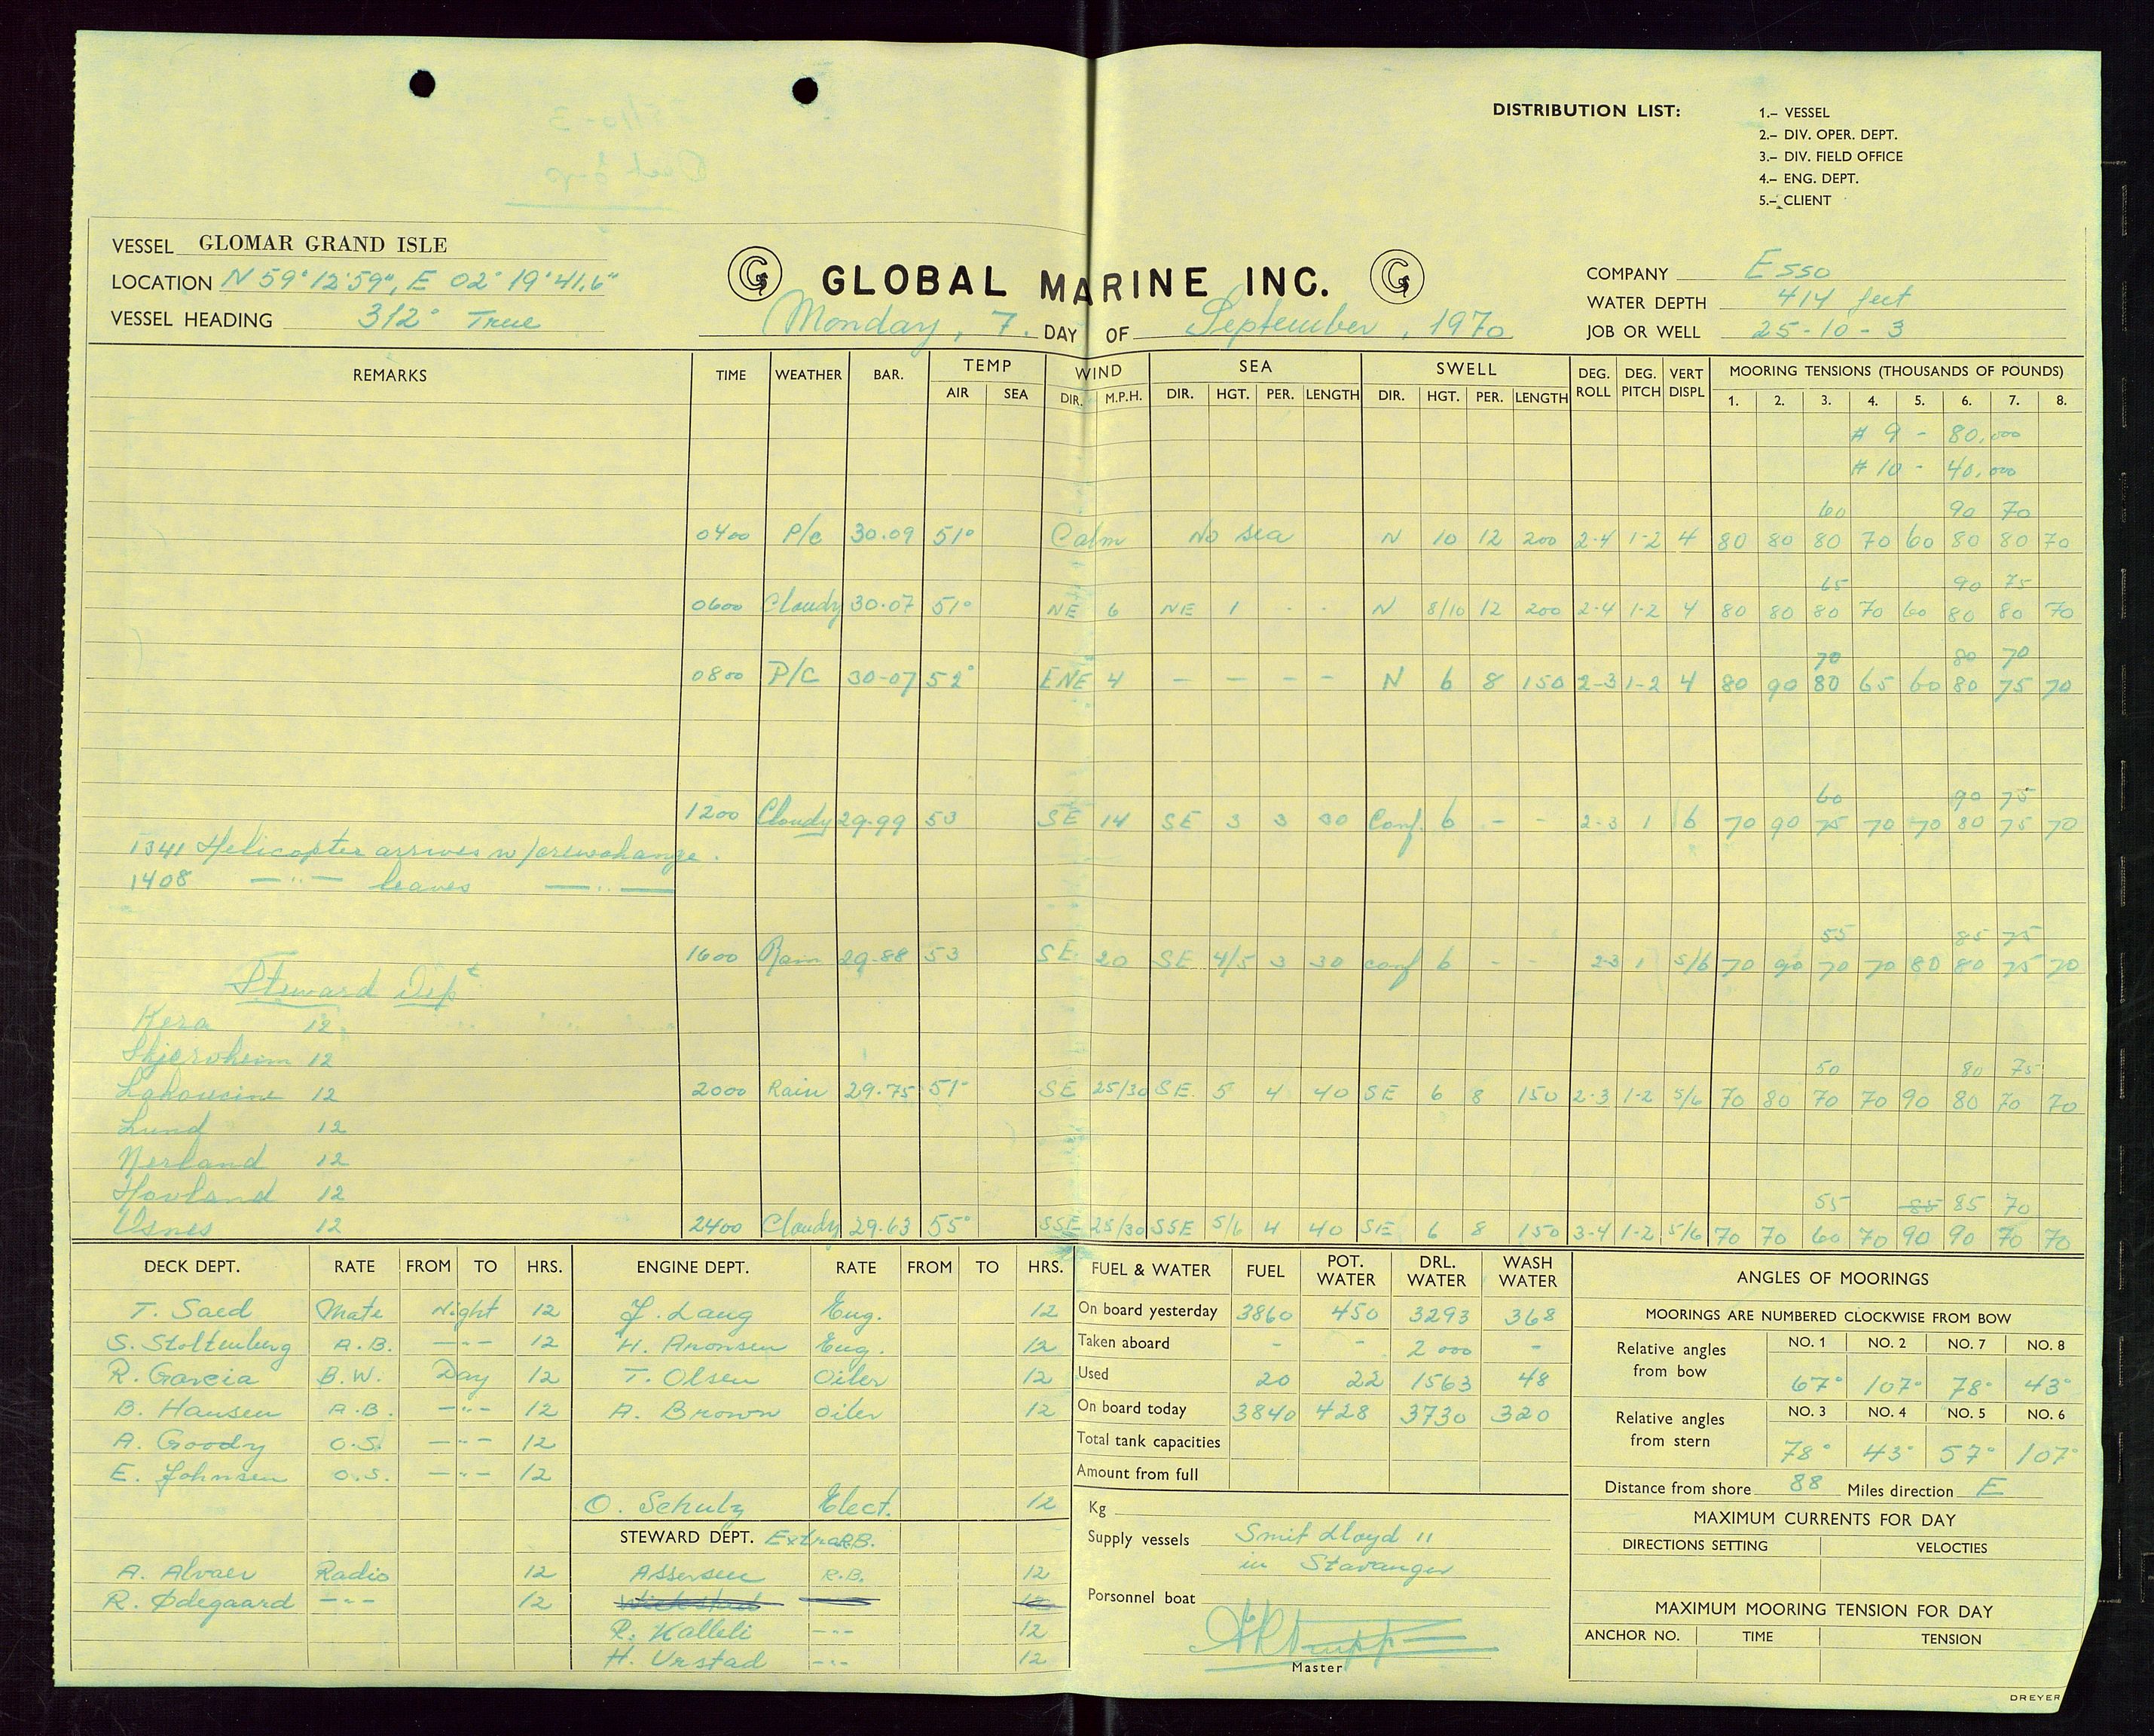 DISTRIBUTION LIST:
1.- VESSEL
2.- DIV. OPER. DEPT.
3.- DIV. FIELD OFFICE
4.- ENG. DEPT.
5.- CLIENT
VESSEL GLOMAR GRAND ISLE
LOCATION N 59° 12' 59", E 02° 19' 41.6"
VESSEL HEADING 312° True
GLOBAL MARINE INC.
Monday, 7. DAY OF September, 1970
COMPANY Esso
WATER DEPTH 414 feet
JOB OR WELL 25-10-3
REMARKS TIME WEATHER BAR. TEMP WIND SEA SWELL DEG. ROLL DEG. PITCH VERT DISPL MOORING TENSIONS (THOUSANDS OF POUNDS)
AIR SEA DIR. M.P.H. DIR. HGT. PER. LENGTH DIR. HGT. PER. LENGTH 1. 2. 3. 4. 5. 6. 7. 8.
# 9 - 80,000
# 10 - 40,000
60 90 70
0400 P/c 30.09 51° Calm No sea N 10 12 200 2-4 1-2 4 80 80 80 70 60 80 80 70
65 90 75
0600 Cloudy 30.07 51° NE 6 NE 1 - - N 8/10 12 200 2-4 1-2 4 80 80 80 70 60 80 80 70
70 80 70
0800 P/C 30-07 52° ENE 4 - - - - N 6 8 150 2-3 1-2 4 80 90 80 65 60 80 75 70
60 90 75
1200 Cloudy 29.99 53 SE 14 SE 3 3 30 Conf. 6 - - 2-3 1 6 70 90 75 70 70 80 75 70
1341 Helicopter arrives w/crewchange.
1408 —"— leaves —"—
55 85 75
1600 Rain 29.88 53 SE 20 SE 4/5 3 30 conf 6 - - 2-3 1 5/6 70 90 70 70 80 80 75 70
Steward Dept
Kera 12
Skjerveheim 12
50 80 75
Lahoucine 12 2000 Rain 29.75 51° SE 25/30 SE 5 4 40 SE 6 8 150 2-3 1-2 5/6 70 80 70 70 90 80 70 70
Lund 12
Nerland 12
Hovland 12
55 85 85 70
Usnes 12 2400 Cloudy 29.63 55° SSE 25/30 SSE 5/6 4 40 SE 6 8 150 3-4 1-2 5/6 70 70 60 70 90 90 70 70
DECK DEPT. RATE FROM TO HRS.
T. Saed Mate Night 12
S. Stoltenberg A.B. —"— 12
R. Garcia B.W. Day 12
B. Hansen A.B. —"— 12
A. Goody O.S. —"— 12
E. Johnsen O.S. —"— 12
A. Alvaer Radio 12
R. Ødegaard —"— 12
ENGINE DEPT. RATE FROM TO HRS.
J. Laug Eng. 12
H. Aronsen Eng. 12
T. Olsen Oiler 12
A. Brown Oiler 12
O. Schulz Elect. 12
STEWARD DEPT. Extra R.B.
Assersen R.B. 12
R. Kalleli —"— 12
H. Urstad —"— 12
FUEL & WATER FUEL POT. WATER DRL. WATER WASH WATER
On board yesterday 3860 450 3293 368
Taken aboard - - 2000 -
Used 20 22 1563 48
On board today 3840 428 3730 320
Total tank capacities
Amount from full
Kg
Supply vessels Smit Lloyd 11
in Stavanger
Personnel boat
Master
ANGLES OF MOORINGS
MOORINGS ARE NUMBERED CLOCKWISE FROM BOW
Relative angles from bow NO. 1 NO. 2 NO. 7 NO. 8
67° 107° 78° 43°
Relative angles from stern NO. 3 NO. 4 NO. 5 NO. 6
78° 43° 57° 107°
Distance from shore 88 Miles direction E
MAXIMUM CURRENTS FOR DAY
DIRECTIONS SETTING VELOCTIES
MAXIMUM MOORING TENSION FOR DAY
ANCHOR NO. TIME TENSION
DREYER